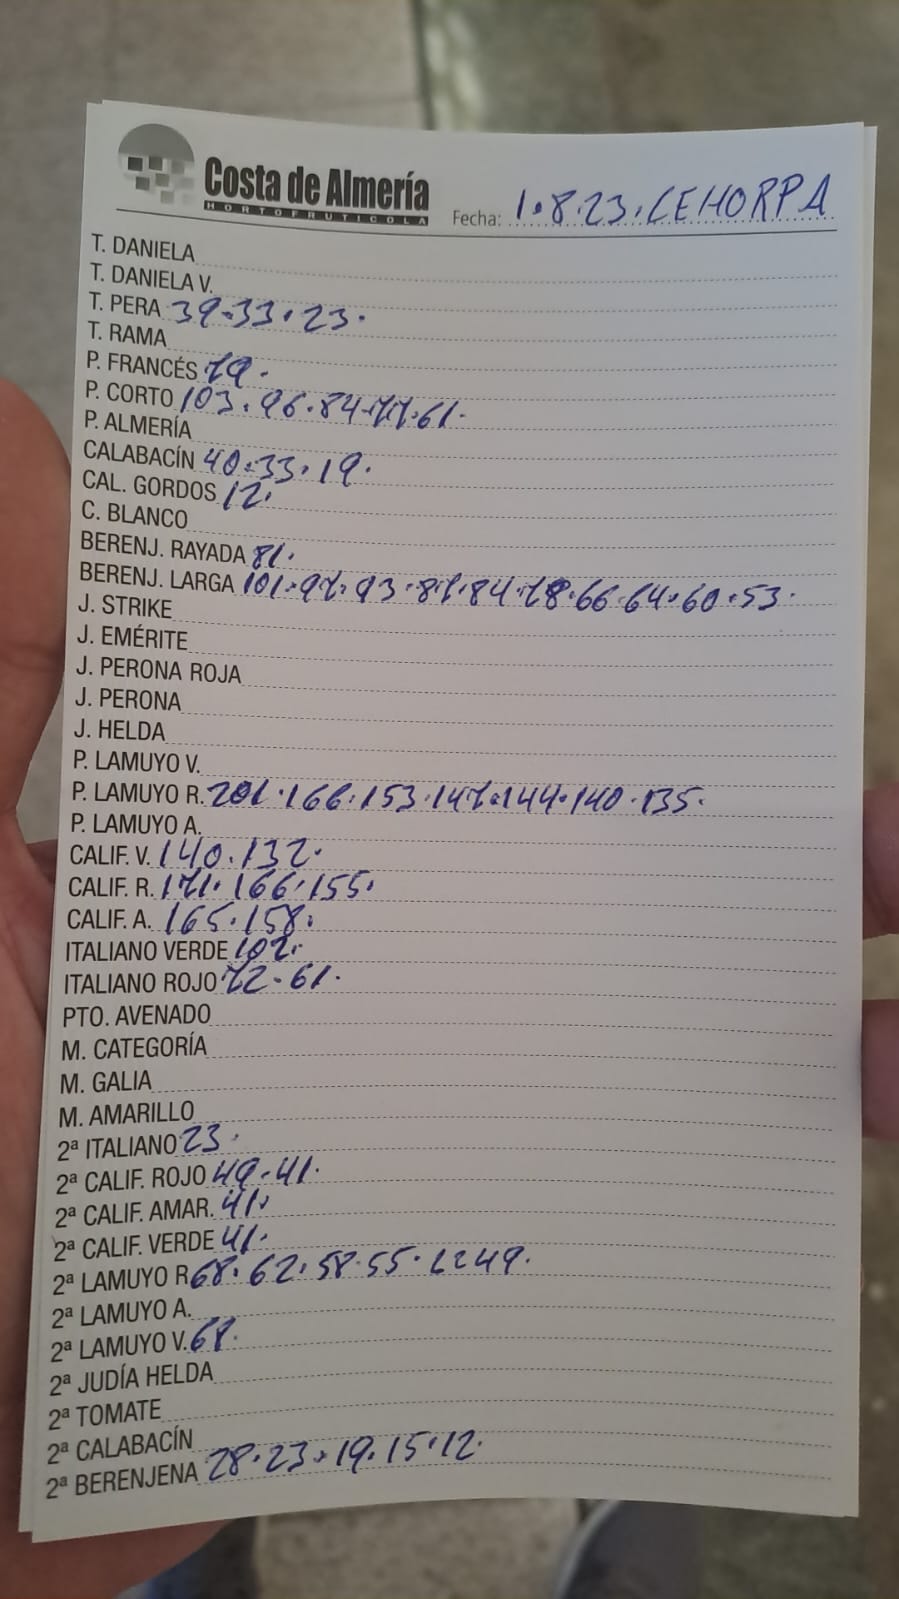 Costa de Almería
HORTOFRUTICOLA
Fecha: 1.8.23. CEHORPA
T. DANIELA
T. DANIELA V.
T. PERA 39.33.23.
T. RAMA
P. FRANCÉS 79.
P. CORTO 103.96.84.77.61.
P. ALMERÍA
CALABACÍN 40.33.19.
CAL. GORDOS 12.
C. BLANCO
BERENJ. RAYADA 81.
BERENJ. LARGA 101.97.93.87.84.78.66.64.60.53.
J. STRIKE
J. EMÉRITE
J. PERONA ROJA
J. PERONA
J. HELDA
P. LAMUYO V.
P. LAMUYO R. 201.166.153.147.144.140.135.
P. LAMUYO A.
CALIF. V. 140.132.
CALIF. R. 171.166.155.
CALIF. A. 165.158.
ITALIANO VERDE 102.
ITALIANO ROJO 72.61.
PTO. AVENADO
M. CATEGORÍA
M. GALIA
M. AMARILLO
2ª ITALIANO 23.
2ª CALIF. ROJO 49.41.
2ª CALIF. AMAR. 41.
2ª CALIF. VERDE 41.
2ª LAMUYO R 68.62.58.55. 49.
2ª LAMUYO A.
2ª LAMUYO V. 68.
2ª JUDÍA HELDA
2ª TOMATE
2ª CALABACÍN
2ª BERENJENA 28.23.19.15.12.